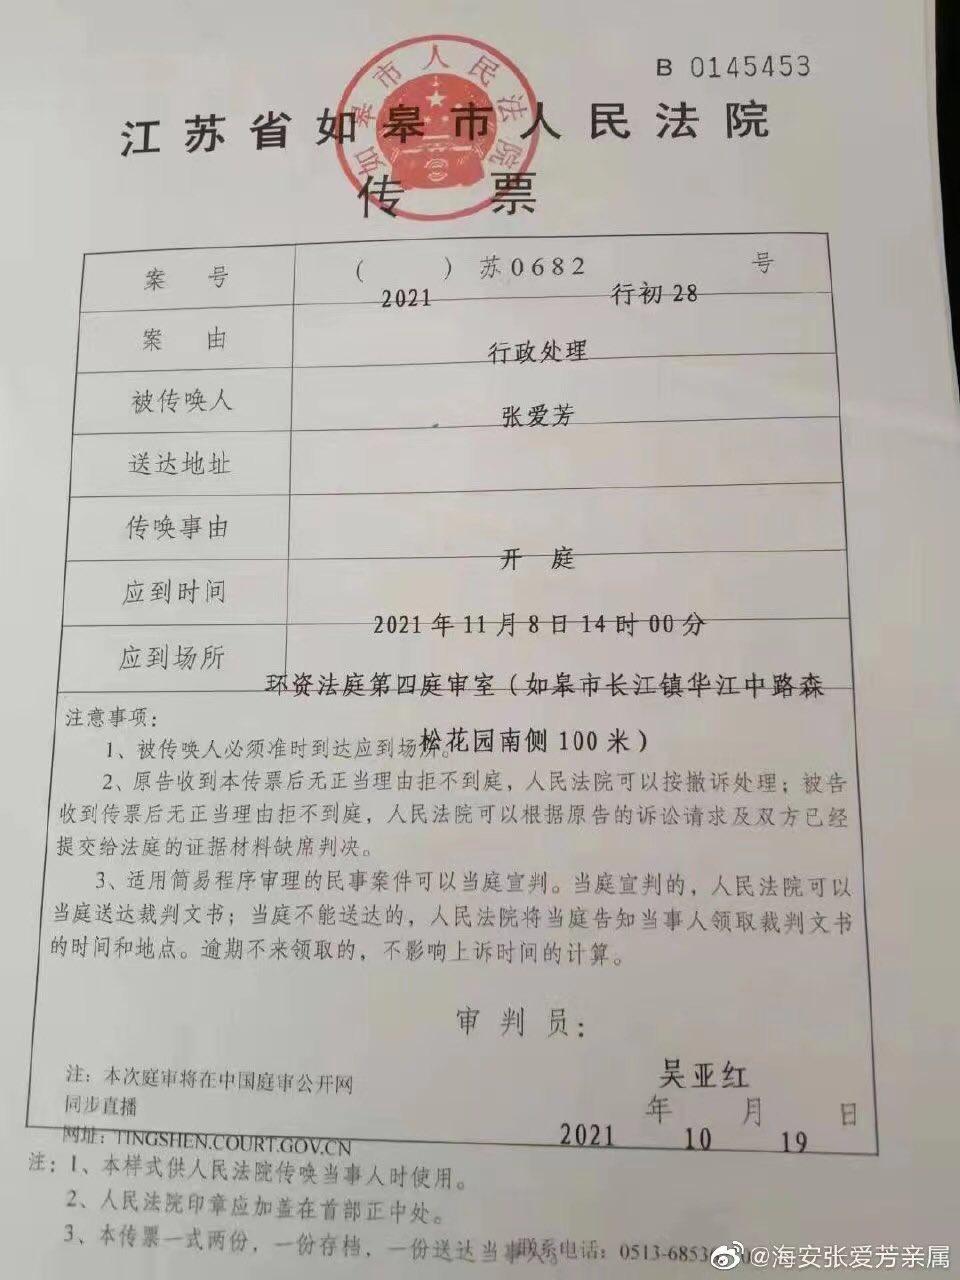 B 0145453
如皋市人民法院
江苏省如皋市人民法院
传 票
案 号
( ) 苏0682 号
2021 行初28
案 由
行政处理
被传唤人
张爱芳
送达地址
传唤事由
开 庭
应到时间
2021年11月8日14时00分
应到场所
环资法庭第四庭审室（如皋市长江镇华江中路森
松花园南侧100米）
注意事项：
1、被传唤人必须准时到达应到场所。
2、原告收到本传票后无正当理由拒不到庭，人民法院可以按撤诉处理；被告
收到传票后无正当理由拒不到庭，人民法院可以根据原告的诉讼请求及双方已经
提交给法庭的证据材料缺席判决。
3、适用简易程序审理的民事案件可以当庭宣判。当庭宣判的，人民法院可以
当庭送达裁判文书；当庭不能送达的，人民法院将当庭告知当事人领取裁判文书
的时间和地点。逾期不来领取的，不影响上诉时间的计算。
审 判 员：
吴亚红
年 月 日
2021 10 19
注：本次庭审将在中国庭审公开网
同步直播
网址：TINGSHEN.COURT.GOV.CN
注：1、本样式供人民法院传唤当事人时使用。
2、人民法院印章应加盖在首部正中处。
3、本传票一式两份，一份存档，一份送达当事人。
联系电话：0513-6853
@海安张爱芳亲属